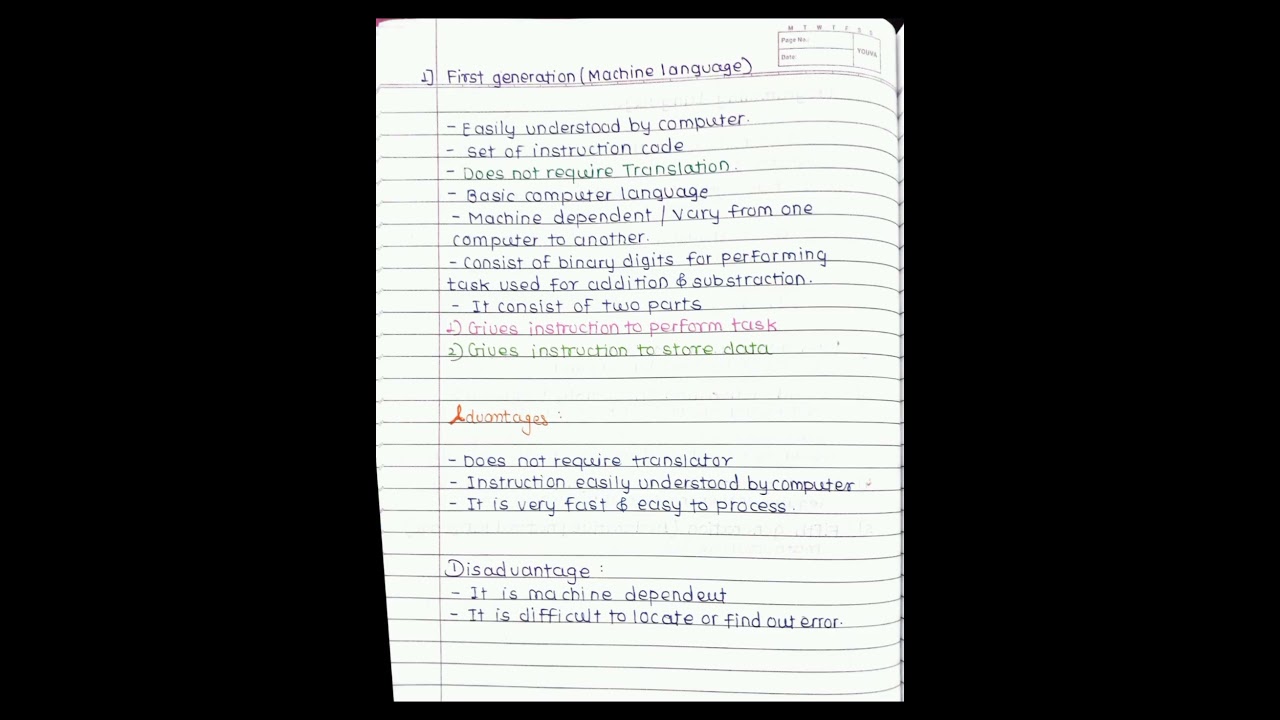 M T W T F S S
Page No.:
Date:
YOUVA
1] First generation (Machine language)
- Easily understood by computer.
- set of instruction code
- Does not require Translation.
- Basic computer language
- Machine dependent / Vary from one
computer to another.
- consist of binary digits for performing
task used for addition & substraction.
- It consist of two parts
1) Gives instruction to perform task
2) Gives instruction to store data
Advantages :
- Does not require translator
- Instruction easily understood by computer
- It is very fast & easy to process.
Disadvantage :
- It is machine dependent
- It is difficult to locate or find out error.